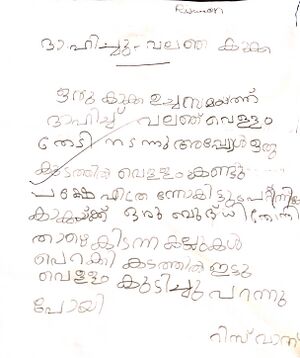 ദാഹിച്ചു - വലഞ്ഞ കാക്ക
ഒരു കാക്ക ഉച്ചസമയത്ത്
ദാഹിച്ച് വലഞ്ഞ് വെള്ളം
തേടി നടന്നു അപ്പോൾ ഒരു
കുടത്തിൽ വെള്ളം കണ്ടു
പക്ഷേ എത്ര നോകിട്ടും
കാകയ്ക്ക് ഒരു ബുദ്ധി തോന്നി
താഴെ കിടന്ന കല്ലുകൾ
പെറകി കടത്തിൽ ഇട്ടു
വെള്ളം കുടിച്ചു പറന്നു
പോയി
റിസ് വാന